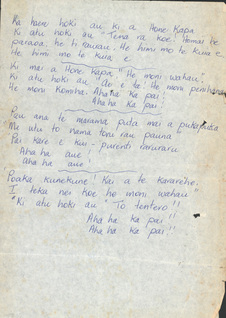 Ka haere hoki au ki a Hone Kapa
Ki atu hoki au "Tena ra koe! Homai he
paraoa, he ti rauau. He himi mo te kura e
He himi mo te kura e
Ki mai a Hone Kapa "He moni wahau".
Ki atu hoki au "Ao e ta. He mona penihana
He moni Komiha. Ahaha ka pai!
Ahaha ka pai!
Pou ana te marama puta mai a pukapuka
Me utu to nama toru rau pauna"
Pai kare e kuu - purenti ruruaru
Aha ha aue!
aha ha aue!
Poaka kunekune! Kai a te kararehe,
I teka nei koe he moni wahau"
"Ki atu hoki au "To tentero"!!
Aha ha ka pai!!
Aha ha ka pai!!